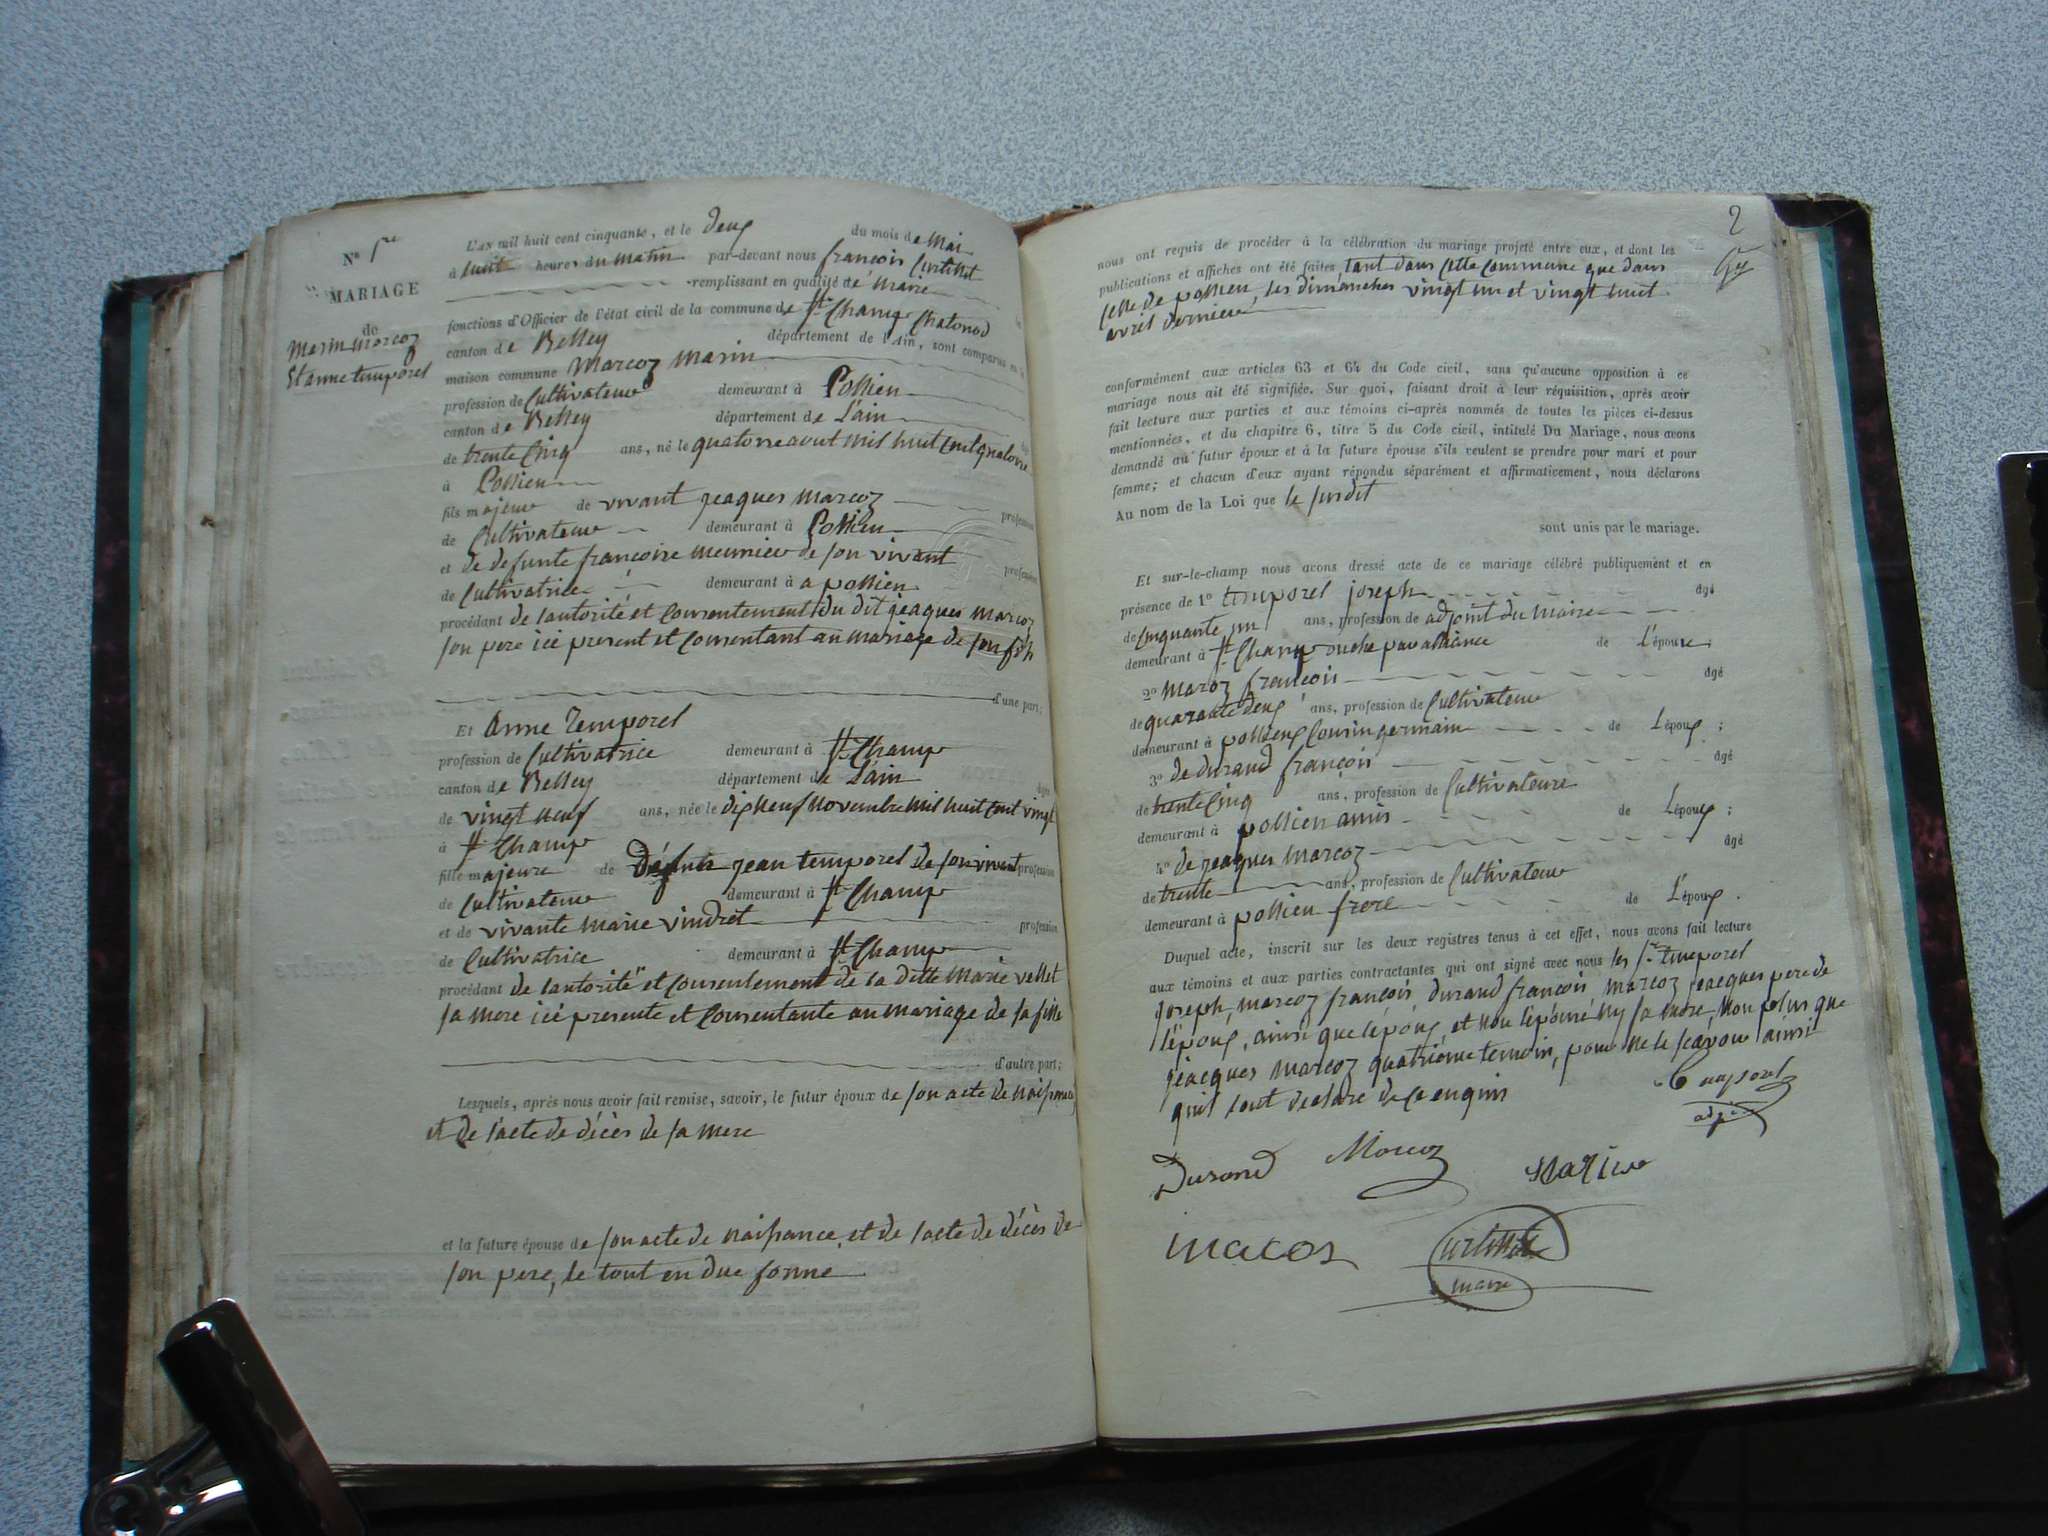 N° 1er
MARIAGE
de
Marin Marcoz
Et anne temporel
L'AN mil huit cent cinquante, et le deux du mois de Mai
à huit heures du matin par-devant nous françois Curtillet
remplissant en qualité de Maire
fonctions d'Officier de l'état civil de la commune de St Champ Chatonod
canton de Belley département de l'Ain, sont comparus en la
maison commune Marcoz Marin
profession de Cultivateur demeurant à Pollieu
canton de Belley département de L'ain
de trente Cinq ans, né le quatorze aout Mil huit Cent quatorze
à Pollieu
fils majeur de vivant jeaques Marcoz profession
de Cultivateur demeurant à Pollieu
et de defunte francoise meunier de son vivant profession
de Cultivatrice demeurant à a pollieu
procédant de lautorité et Consentement du dit jeaques Marcoz
son pere ici present et Consentant au mariage de son fils
d'une part;
Et Anne Temporel
profession de Cultivatrice demeurant à St Champ
canton de Belley département de L'ain
de vingt neuf ans, née le dix Neuf Novembre Mil huit Cent vingt
à St Champ
fille majeure de Défunt jean temporel de son vivant profession
de Cultivateur demeurant à St Champ
et de vivante Marie vindret profession
de Cultivatrice demeurant à St Champ
procédant de lautorité et Consentement de la ditte Marie
sa mere ici presente et Consentante au mariage de sa fille
d'autre part;
Lesquels, après nous avoir fait remise, savoir, le futur époux de son acte de Naissance
et de l'acte de décès de sa mere
et la future épouse de son acte de Naissance et de l'acte de décès de
son pere, le tout en due forme
2
nous ont requis de procéder à la célébration du mariage projeté entre eux, et dont les
publications et affiches ont été faites tant dans cette Commune que dans
celle de pollieu, les dimanches vingt un et vingt huit
avril dernier
conformément aux articles 63 et 64 du Code civil, sans qu'aucune opposition à ce
mariage nous ait été signifiée. Sur quoi, faisant droit à leur réquisition, après avoir
fait lecture aux parties et aux témoins ci-après nommés de toutes les pièces ci-dessus
mentionnées, et du chapitre 6, titre 5 du Code civil, intitulé Du Mariage, nous avons
demandé au futur époux et à la future épouse s'ils veulent se prendre pour mari et pour
femme; et chacun d'eux ayant répondu séparément et affirmativement, nous déclarons
Au nom de la Loi que le susdit
sont unis par le mariage.
Et sur-le-champ nous avons dressé acte de ce mariage célébré publiquement et en
présence de 1° temporel joseph âgé
de Cinquante un ans, profession de adjoint du Maire
demeurant à St Champ oncle par alliance de L'épouse;
2° Maroz françois âgé
de quarante deux ans, profession de Cultivateur
demeurant à pollieu Cousin germain de L'époux;
3° de durand françois âgé
de trente Cinq ans, profession de Cultivateur
demeurant à pollieu amis de L'époux;
4° de jeaques Marcoz âgé
de trente ans, profession de Cultivateur
demeurant à pollieu frere de L'époux.
Duquel acte, inscrit sur les deux registres tenus à cet effet, nous avons fait lecture
aux témoins et aux parties contractantes qui ont signé avec nous les Sr temporel
joseph, marcoz françois, durand françois, marcoz jeacques pere de
l'époux, ainsi que l'époux et non l'épouse Ny sa mere, non plus que
jeacques Marcoz quatrième temoin, pour Ne le scavoir ainsi
quil tout declaré de ce enquis
adj.
Durand Marcoz Marin
Macoz Curtillet
maire